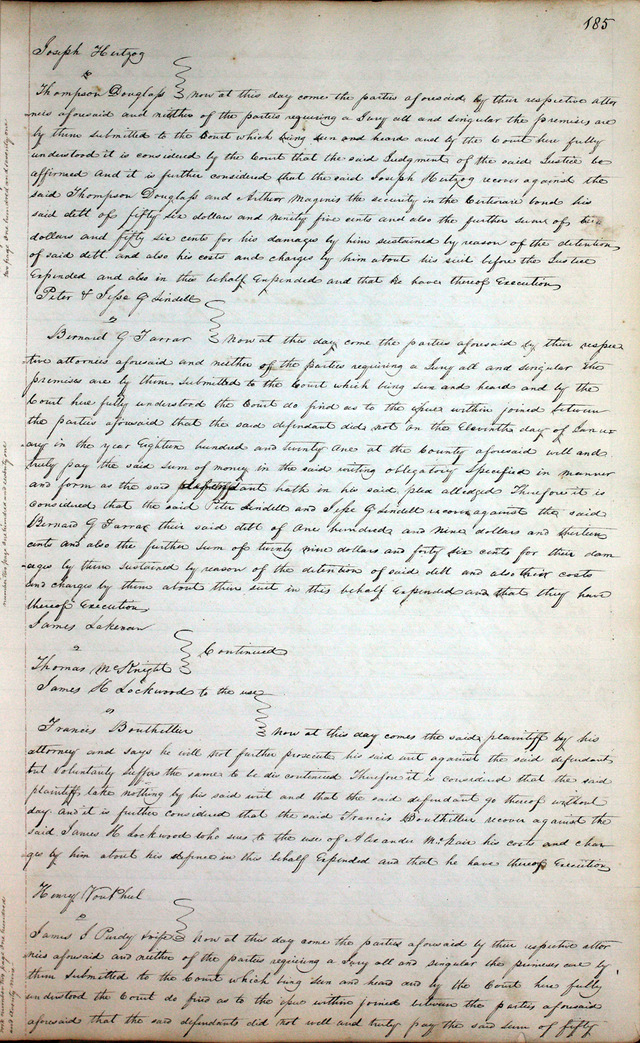 185
Joseph Hertzog
vs
Thompson Douglass Now at this day come the parties aforesaid by their respective attor
nies aforesaid and neither of the parties requiring a Jury all and singular the premises are
by them submitted to the Court which being seen and heard and by the Court here fully
understood it is considered by the Court that the said Judgment of the said Justice be
affirmed And it is further considered that the said Joseph Hertzog recover against the
said Thompson Douglass and Arthur Maginis the security in the Certiorari bond his
said debt of fifty six dollars and ninety five cents and also the further sum of
dollars and fifty six cents for his damages by him sustained by reason of the detention
of said debt and also his costs and charges by him about his suit before the Justice
Expended and also in this behalf Expended and that he have thereof Execution
Peter & Jesse G Lindell
vs
Bernard G Farrar Now at this day come the parties aforesaid by their respec
tive attornies aforesaid and neither of the parties requiring a Jury all and singular the
premises are by them submitted to the Court which being seen and heard and by the
Court here fully understood the Court do find as to the issue within joined between
the parties aforesaid that the said defendant did not on the Eleventh day of Janu
ary in the year Eighteen hundred and twenty one at the County aforesaid well and
truly pay the said sum of money in the said writing obligatory specified in manner
and form as the said defendant hath in his said plea alledged Therefore it is
considered that the said Peter Lindell and Jesse G Lindell recover against the said
Bernard G Farrar their said debt of one hundred and nine dollars and thirteen
cents and also the further sum of twenty nine dollars and forty six cents for their dam
ages by them sustained by reason of the detention of said debt and also their costs
and charges by them about their suit in this behalf Expended and that they have
thereof Execution
James Lakenan
vs Continued
Thomas McKnight
James H Lockwood to the use
vs
Francis Bouthellier Now at this day comes the said plaintiff by his
attorney and says he will not further prosecute his said writ against the said defendant
but Voluntarily suffers the same to be discontinued Therefore it is considered that the said
plaintiff take nothing by his said writ and that the said defendant go thereof without
day And it is further considered that the said Francis Bouthellier recover against the
said James H Lockwood who sues to the use of Alexander McNair his costs and char
ges by him about his defence in this behalf Expended and that he have thereof Execution
Henry Von Phul
vs
James S Purdy & wife Now at this day come the parties aforesaid by their respective attor
nies aforesaid and neither of the parties requiring a Jury all and singular the premises are by
them submitted to the Court which being seen and heard and by the Court here fully
understood the Court do find as to the issue within joined between the parties aforesaid
aforesaid that the said defendants did not well and truly pay the said sum of fifty